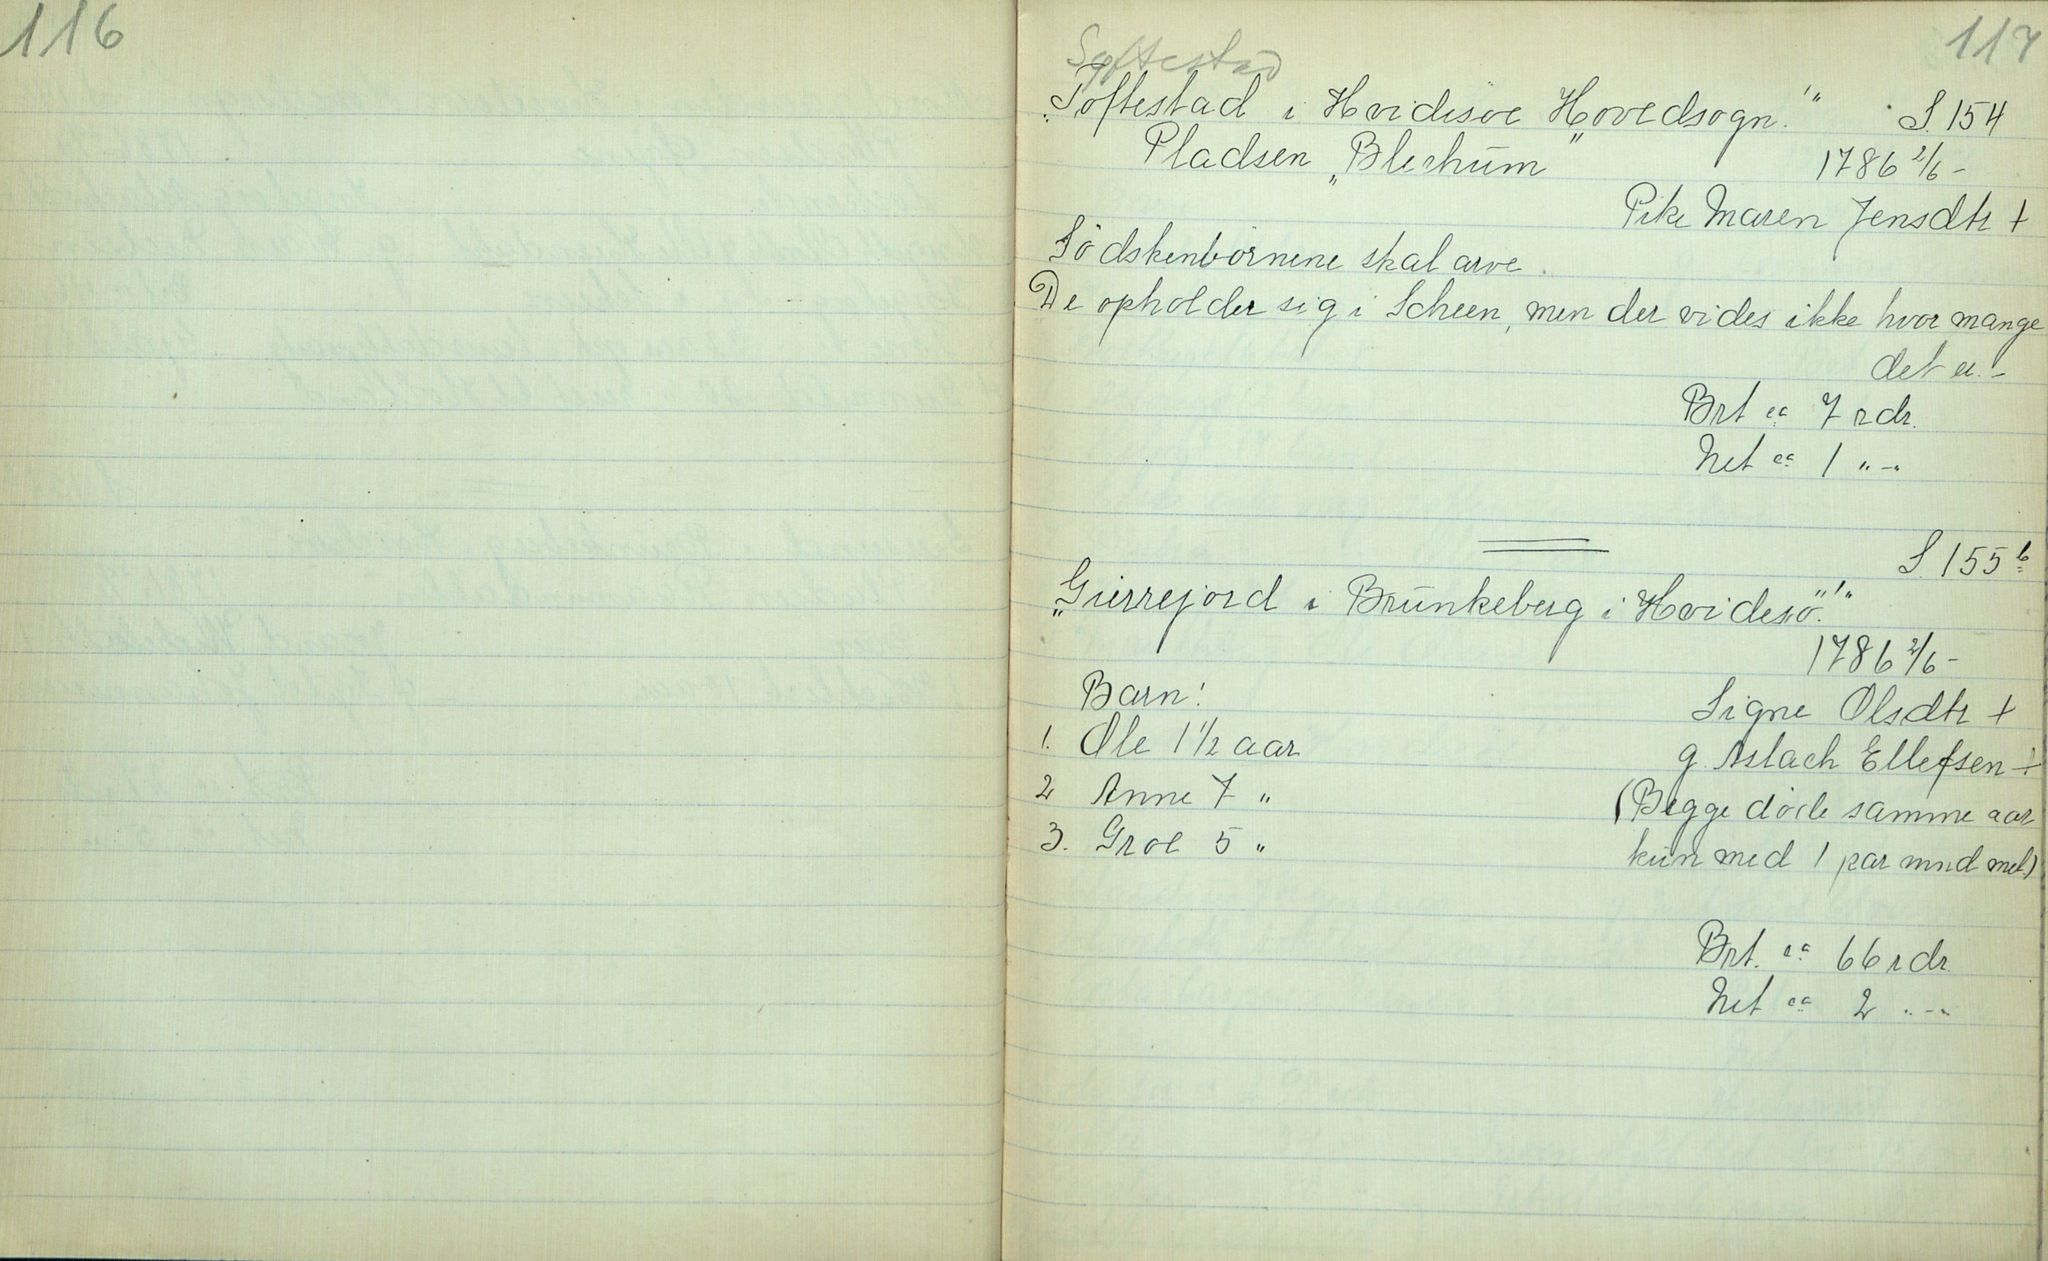 116
117
Søftestad
"Toftestad i Hvidisöe Hovedsogn!" S. 154
Pladsen "Blechum" 1786 2/6 -
Pike Maren Jensdtr +
Södskenbörnene skal arve.
De opholder sig i Scheen, men der vides ikke hvor mange
det er. -
Brt ca 7 rdr.
Net ca 1 " -"
S. 155 b
"Gierrejord i Brunkeberg i Hvidesö"!"
1786 2/6 -
Barn: Signe Olsdtr +
1. Ole 1 1/2 aar g. Aslach Ellefsen +
2 Anne 7 " (Begge döde samme aar
3. Groe 5 " kun med 1 par mnd mel.)
Brt. ca 66 rdr.
Net ca 2 " -"